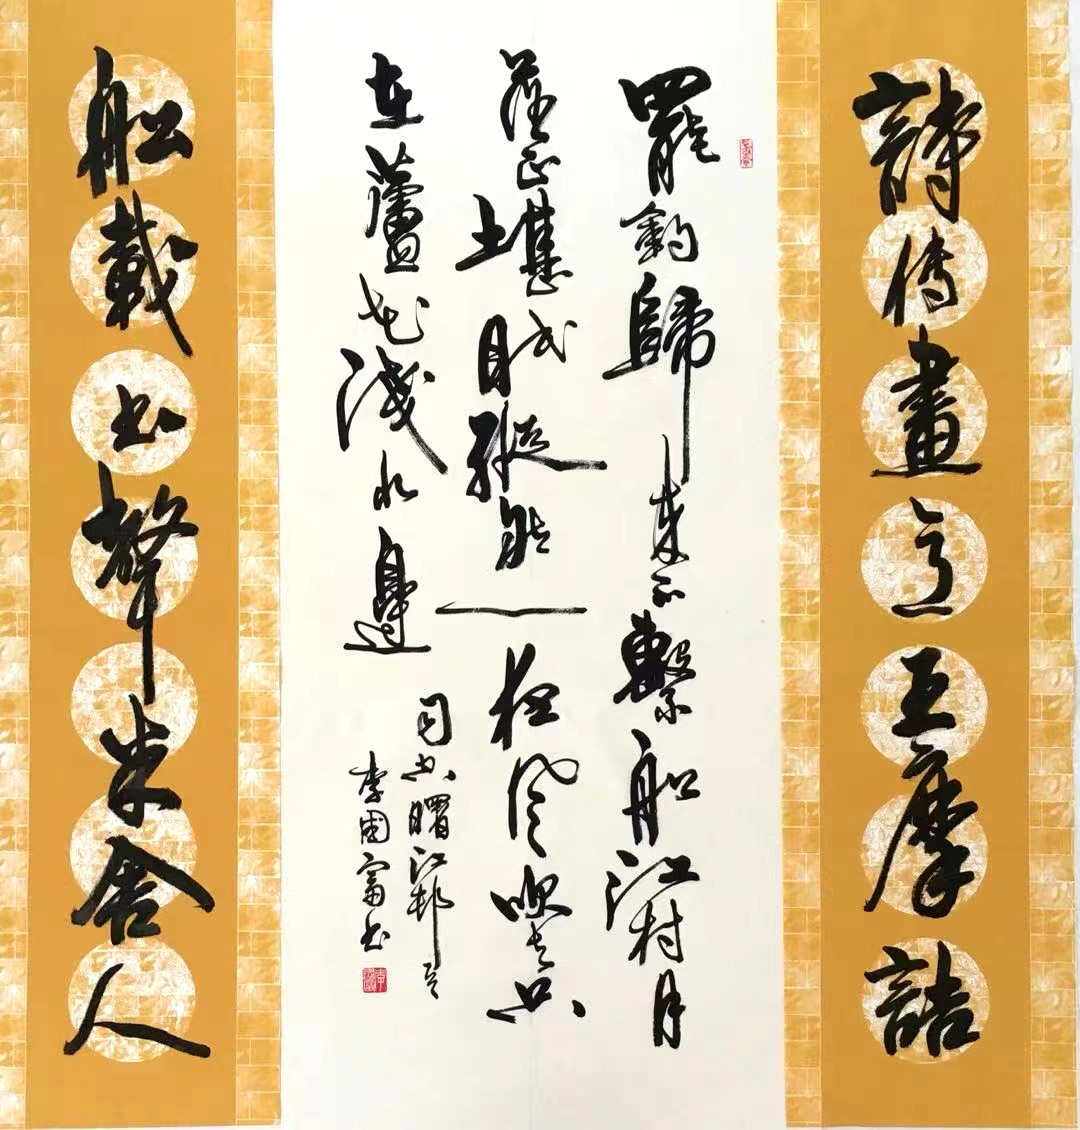 詩傳畫意王摩詰
罷釣歸來不繫船江村月
落正堪眠縱然一夜風吹去只
在蘆花淺水邊
司空曙江邨
李國富書
船載書聲米舍人